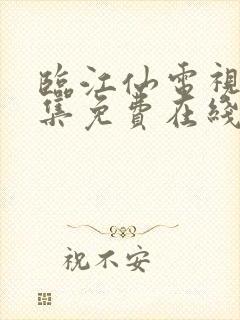 臨江仙電視
集免費在綫
祝不安